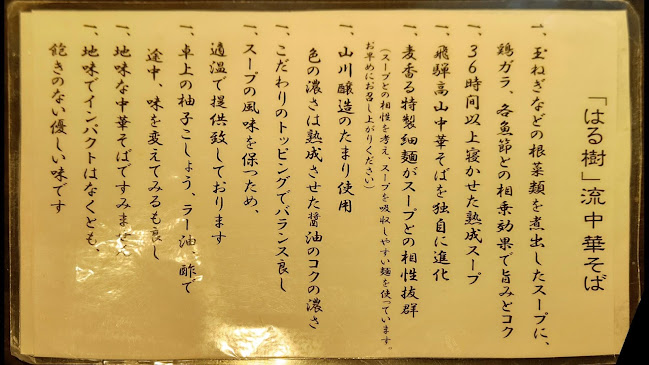 「はる樹」流中華そば
一、玉ねぎなどの根菜類を煮出したスープに、
鶏ガラ、各魚節との相乗効果で旨みとコク
一、36時間以上寝かせた熟成スープ
一、飛騨高山中華そばを独自に進化
一、麦香る特製細麺がスープとの相性抜群
(スープとの相性を考え、スープを吸収しやすい麺を使っています。
お早めにお召し上がりください)
一、山川醸造のたまり使用
色の濃さは熟成させた醤油のコクの濃さ
一、こだわりのトッピングでバランス良し
一、スープの風味を保つため、
適温で提供致しております
一、卓上の柚子こしょう、ラー油、酢で
途中、味を変えてみるも良し
一、地味な中華そばですみません
一、地味でインパクトはなくとも、
飽きのない優しい味です